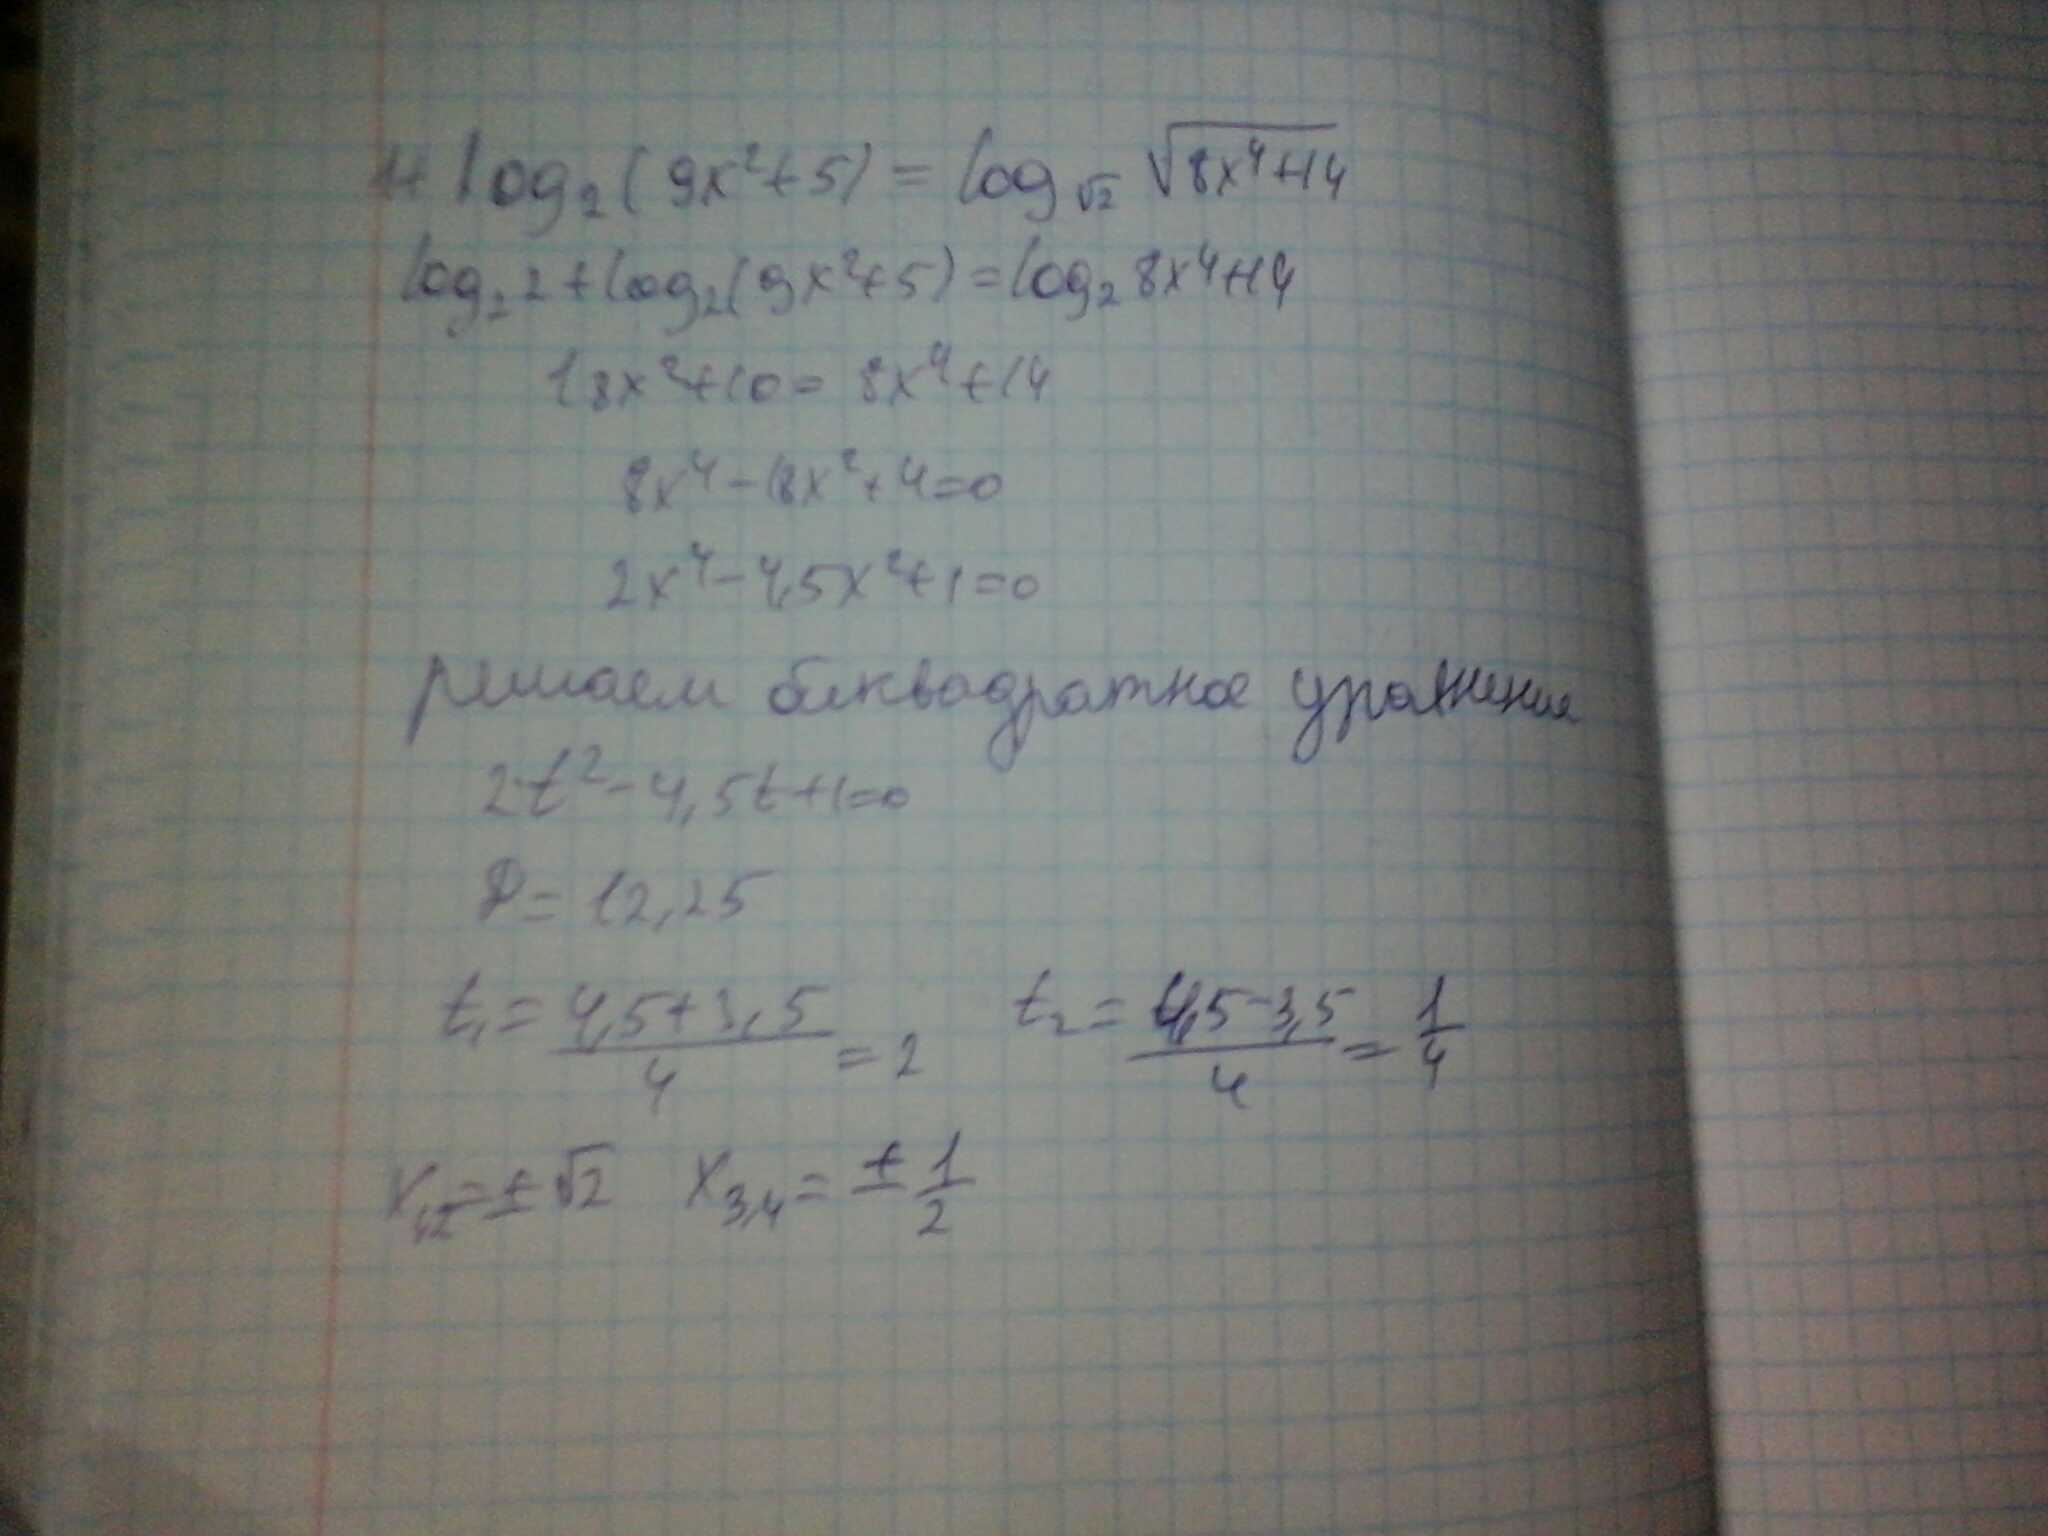 1+log₂(9x²+5)=log_√2 √(8x⁴+14)
log₂2+log₂(9x²+5)=log₂8x⁴+14
18x²+10=8x⁴+14
8x⁴-18x²+4=0
2x⁴-4,5x²+1=0
решаем биквадратное уравнение
2t²-4,5t+1=0
D=12,25
t₁=(4,5+3,5)/4=2 t₂=(4,5-3,5)/4=1/4
x₁,₂=±√2 x₃,₄=±1/2